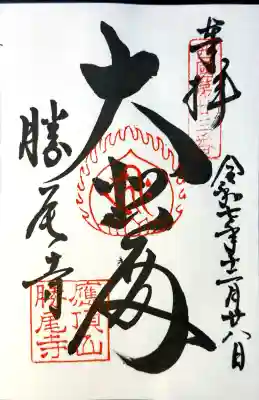 奉拝
西國第廿三番
令和七年十一月廿八日
大悲殿
勝尾寺
應頂山
勝尾寺